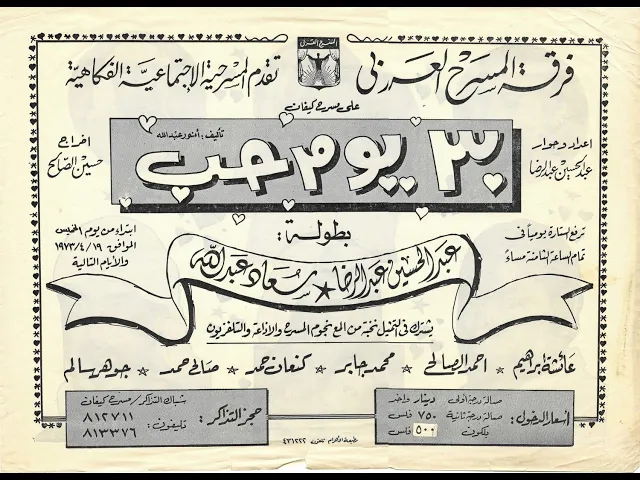 فرقة المسرح العربي
المسرح العربي
تقدم المسرحية الاجتماعية الفكاهية
على مسرح كيفان
تأليف: أنور عبدالله
٣٠ يوم حب
اعداد وحوار
عبدالحسين عبدالرضا
اخراج
حسين الصالح
بطولة:
عبدالحسين عبدالرضا ★ سعاد عبدالله
ترفع الستارة يومياً في
تمام الساعة الثامنة مساءً
ابتداء من يوم الخميس
الموافق ١٩/٤/١٩٧٣
والأيام التالية
يشترك في التمثيل نخبة من ألمع نجوم المسرح والاذاعة والتلفزيون
عائشة ابراهيم ☆ احمد الصالحي ☆ محمد جابر ☆ كنعان حمد ☆ صالح حمد ☆ جوهر سالم
أسعار الدخول:
صالة درجة أولى دينار واحد
صالة درجة ثانية ٧٥٠ فلس
بلكون ٥٠٠ فلس
حجز التذاكر:
شباك التذاكر / مسرح كيفان
تليفون: ٨١٢٧١١
٨١٣٣٧٦
تلفون ٤٣١٢٢٢